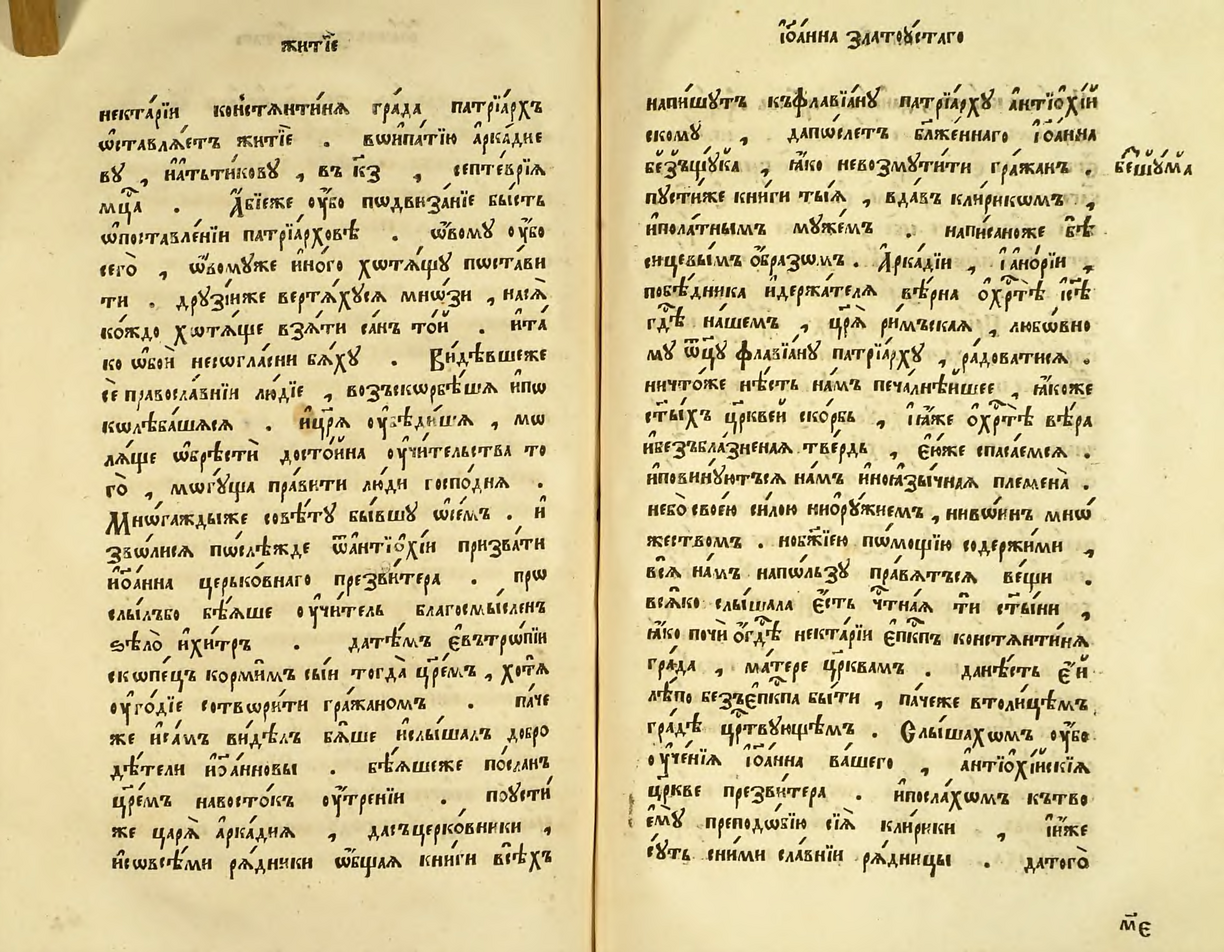 житїе
нектáрїи констѧнтинѧ грáда патрїáрхъ
ѡставлѧ́етъ житїе . вѡипатїю аркáдие
ву , и҆áтьтиковѹ , въ к҃з , септéврїѧ
мц҃а . А҆бїеже ѹ҆бо пѡдвизáнїе бысть
ѡпоставлéнїи патрїáрховѣ . ѡ҆вомѹ ѹ҆бо
сегò , ѡ҆вомѹже и҆ного хѡтѧ́щѹ пѡстáви
ти . дрѹзїиже вертѧ́хѹсѧ мнѡ́зи , насѧ̀
кождо хѡтѧ́ще взѧ́ти сáнъ тои . и҆та
ко ѡ҆бои несѡглáсни бѧ́хѹ . Ви́дѣвшеже
сѐ правослáвнїи лю́дїе , возъскѡрбѣшѧ и҆пѡ
кѡлѣбáшѧсѧ . и҆цр҃ѧ ѹ҆вѣдишѧ , мѡ
лѧ́ще ѡ҆брѣ́сти достóина ѹ҆чи́тельства то
гò , мѡгѹща прáвити лю́ди госпóднѧ .
Мнѡгáждыже совѣ́тѹ бы́вшѹ ѡсéмъ . и҆
звѡлисѧ пѡслѣжде ѿантїохїи призвáти
и҆ѡ҃áнна церькóвнаго презви́тера . прѡ
слы́лъбо бѣ́ѧше ѹ҆чи́тель благосмы́сленъ
ѕѣлò и҆хи́тръ . датѣ́мъ є҆втрѡ́пїи
скопéцъ кормимъ сыи тогдà цр҃емъ , хотѧ̀
ѹ҆гóдїе сотвѡри́ти грáжаномъ . пáче
же и҆сáмъ ви́дѣлъ бѧ́ше и҆слы́шалъ добро
дѣ́тели и҆ѡ҃áнновы . бѣ́ѧшеже пóсланъ
цр҃емъ навостóкъ ѹ҆́тренїи . поѹсти́
же цáрѧ а҆ркáдиѧ , дасъцеркóвники ,
и҆совсѣ́ми рѧ́дники ѡ҆́бщаѧ кни́ги всѣ́хъ
їѡ҃áнна златоѹстаго
напи́шѹтъ къфлавїáнѹ патрїáрхѹ а҆нтїохїй
скомѹ , дапѡслéтъ бл҃жéннаго їѡ҃áнна
безъщѹка , ѩ҆́ко невозмѹти́ти грáжан . бешѹ́ма
пѹсти́же кни́ги ты́ѧ , вдáвъ кли́рикѡмъ ,
и҆полáтнымъ мѹжéмъ . напи́саноже бѣ̀
си́цевымъ ѻ҆́бразѡмъ . А҆ркáдїи , ї҆анóрїи ,
побѣ́дника и҆держáтелѧ вѣ́рна ѻ҆хр҃тѣ̀ їс҃ѣ
гд҃ѣ нáшемъ , цр҃ѧ̀ ри́мъскаѧ , любѡ́вно
мѹ ѿц҃ѹ флавїáнѹ патрїáрхѹ , рáдоватисѧ .
ничтóже нѣ́сть нáмъ печáлнѣишее , ѩ҆́коже
ст҃ы́хъ цр҃квéй скóрбь , ї҆ѩ́же ѻ҆хр҃тѣ̀ вѣ́ра
и҆безъблáзненаѧ твéрдь , є҆́юже спасáемсѧ .
и҆повинѹ́ютъсѧ нáмъ и҆ноѩзы́чнаѧ племенà .
нéбо своéю си́лою ниорѹ́жиемъ , нивѡи́нъ мнѡ́
жествомъ . нобж҃їею пѡ́мощїю содержи́ми ,
всѧ̀ нáмъ напѡ́льзѹ прáвѧтъсѧ вéщи .
всѧ́ко слы́шала є҆́сть чт҃наѧ тѝ ст҃ы́ни ,
ѩ҆́ко почѝ ѻ҆гд҃ѣ нектáрїи є҆пк҃пъ констѧнти́нѧ
грáда , мáтере цр҃квамъ . данѣ́сть є҆́й
лѣ́по безъє҆пк҃па бы́ти , пáчеже втоли́цѣмъ
грáдѣ цр҃твѹющѣмъ . Слы́шахѡмъ ѹ҆́бо
ѹ҆чéнїѧ їѡ҃áнна вáшего , а҆нтїохїйскїѧ
цр҃кве презви́тера . и҆послáхѡмъ кътво
є҆мѹ̀ преподѡ́бїю сїѧ̀ кли́рики , и҆́иже
сѹ́ть сни́ми слáвнїи рѧ́дницы . датогò
м҃є